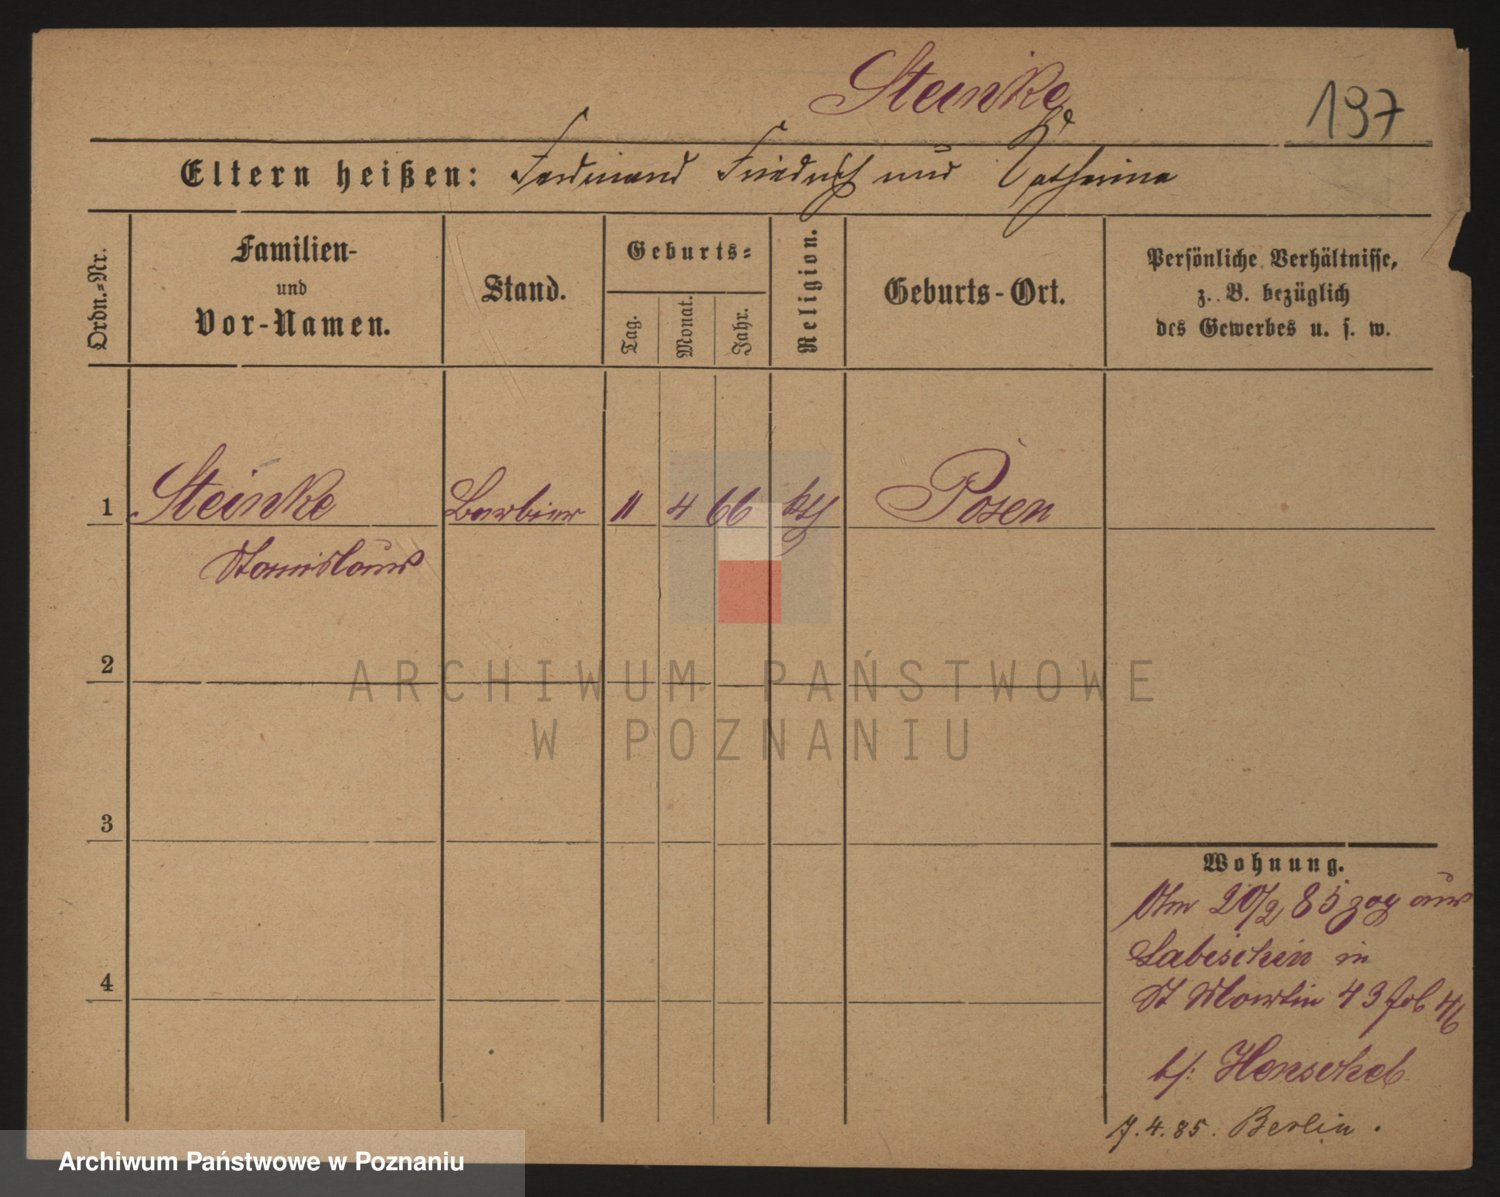 Steinke
197
Eltern heißen: Ferdinand Friedrich und Catharina
Ordn.=Nr.
Familien-
und
Vor-Namen.
Stand.
Geburts=
Tag.
Monat.
Jahr.
Religion.
Geburts-Ort.
Persönliche Verhältnisse,
z. B. bezüglich
des Gewerbes u. s. w.
1 Steinke Barbier 11 4 66 kth Posen
Stanislaus
2
ARCHIWUM PAŃSTWOWE
W POZNANIU
3
Wohnung.
Am 20/2 85 zog aus
Labischin in
St Martin 43
4
b/: Henschel
7.4.85. Berlin.
Archiwum Państwowe w Poznaniu